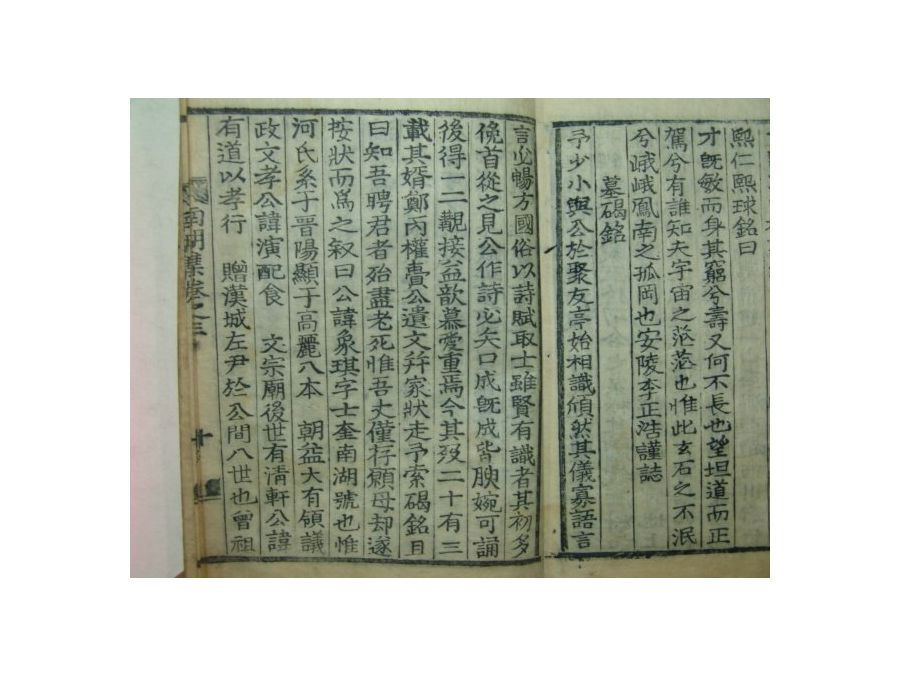 熙仁熙球銘曰
才旣敏而身其窮兮壽又何不長也望坦道而正
駕兮有誰知夫宇宙之茫茫也惟此玄石之不泯
兮峨峨鳳南之孤岡也安陵李正浩謹誌
墓碣銘
予少小與公於聚友亭始相識頎然其儀寡語言
言必暢方國俗以詩賦取士雖賢有識者其初多
俛首從之見公作詩必矢口成旣成皆腴婉可誦
後得一二觀接益歆慕愛重焉今其歿二十有三
載其婿鄭丙權賫公遺文幷家狀走予索碣銘且
曰知吾聘君者殆盡老死惟吾丈僅存願毋却遂
按狀而爲之叙曰公諱象琪字士奎南湖號也惟
河氏系于晋陽顯于高麗入本 朝益大有領議
政文孝公諱演配食 文宗廟後世有淸軒公諱
有道以孝行 贈漢城左尹於公間八世也曾祖
南湖集卷之三 十